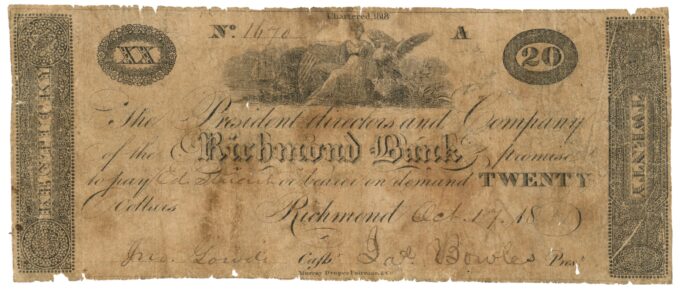 Chartered, 1818
XX No. 1670 A 20
KENTUCKY
The President directors and Company
of the Richmond Bank promise
to pay or bearer on demand TWENTY
Dollars Richmond Oct. 17, 18
Jno. Cashr. Jas. Bowles Prest.
Murray Draper Fairman, & Co.
TWENTY